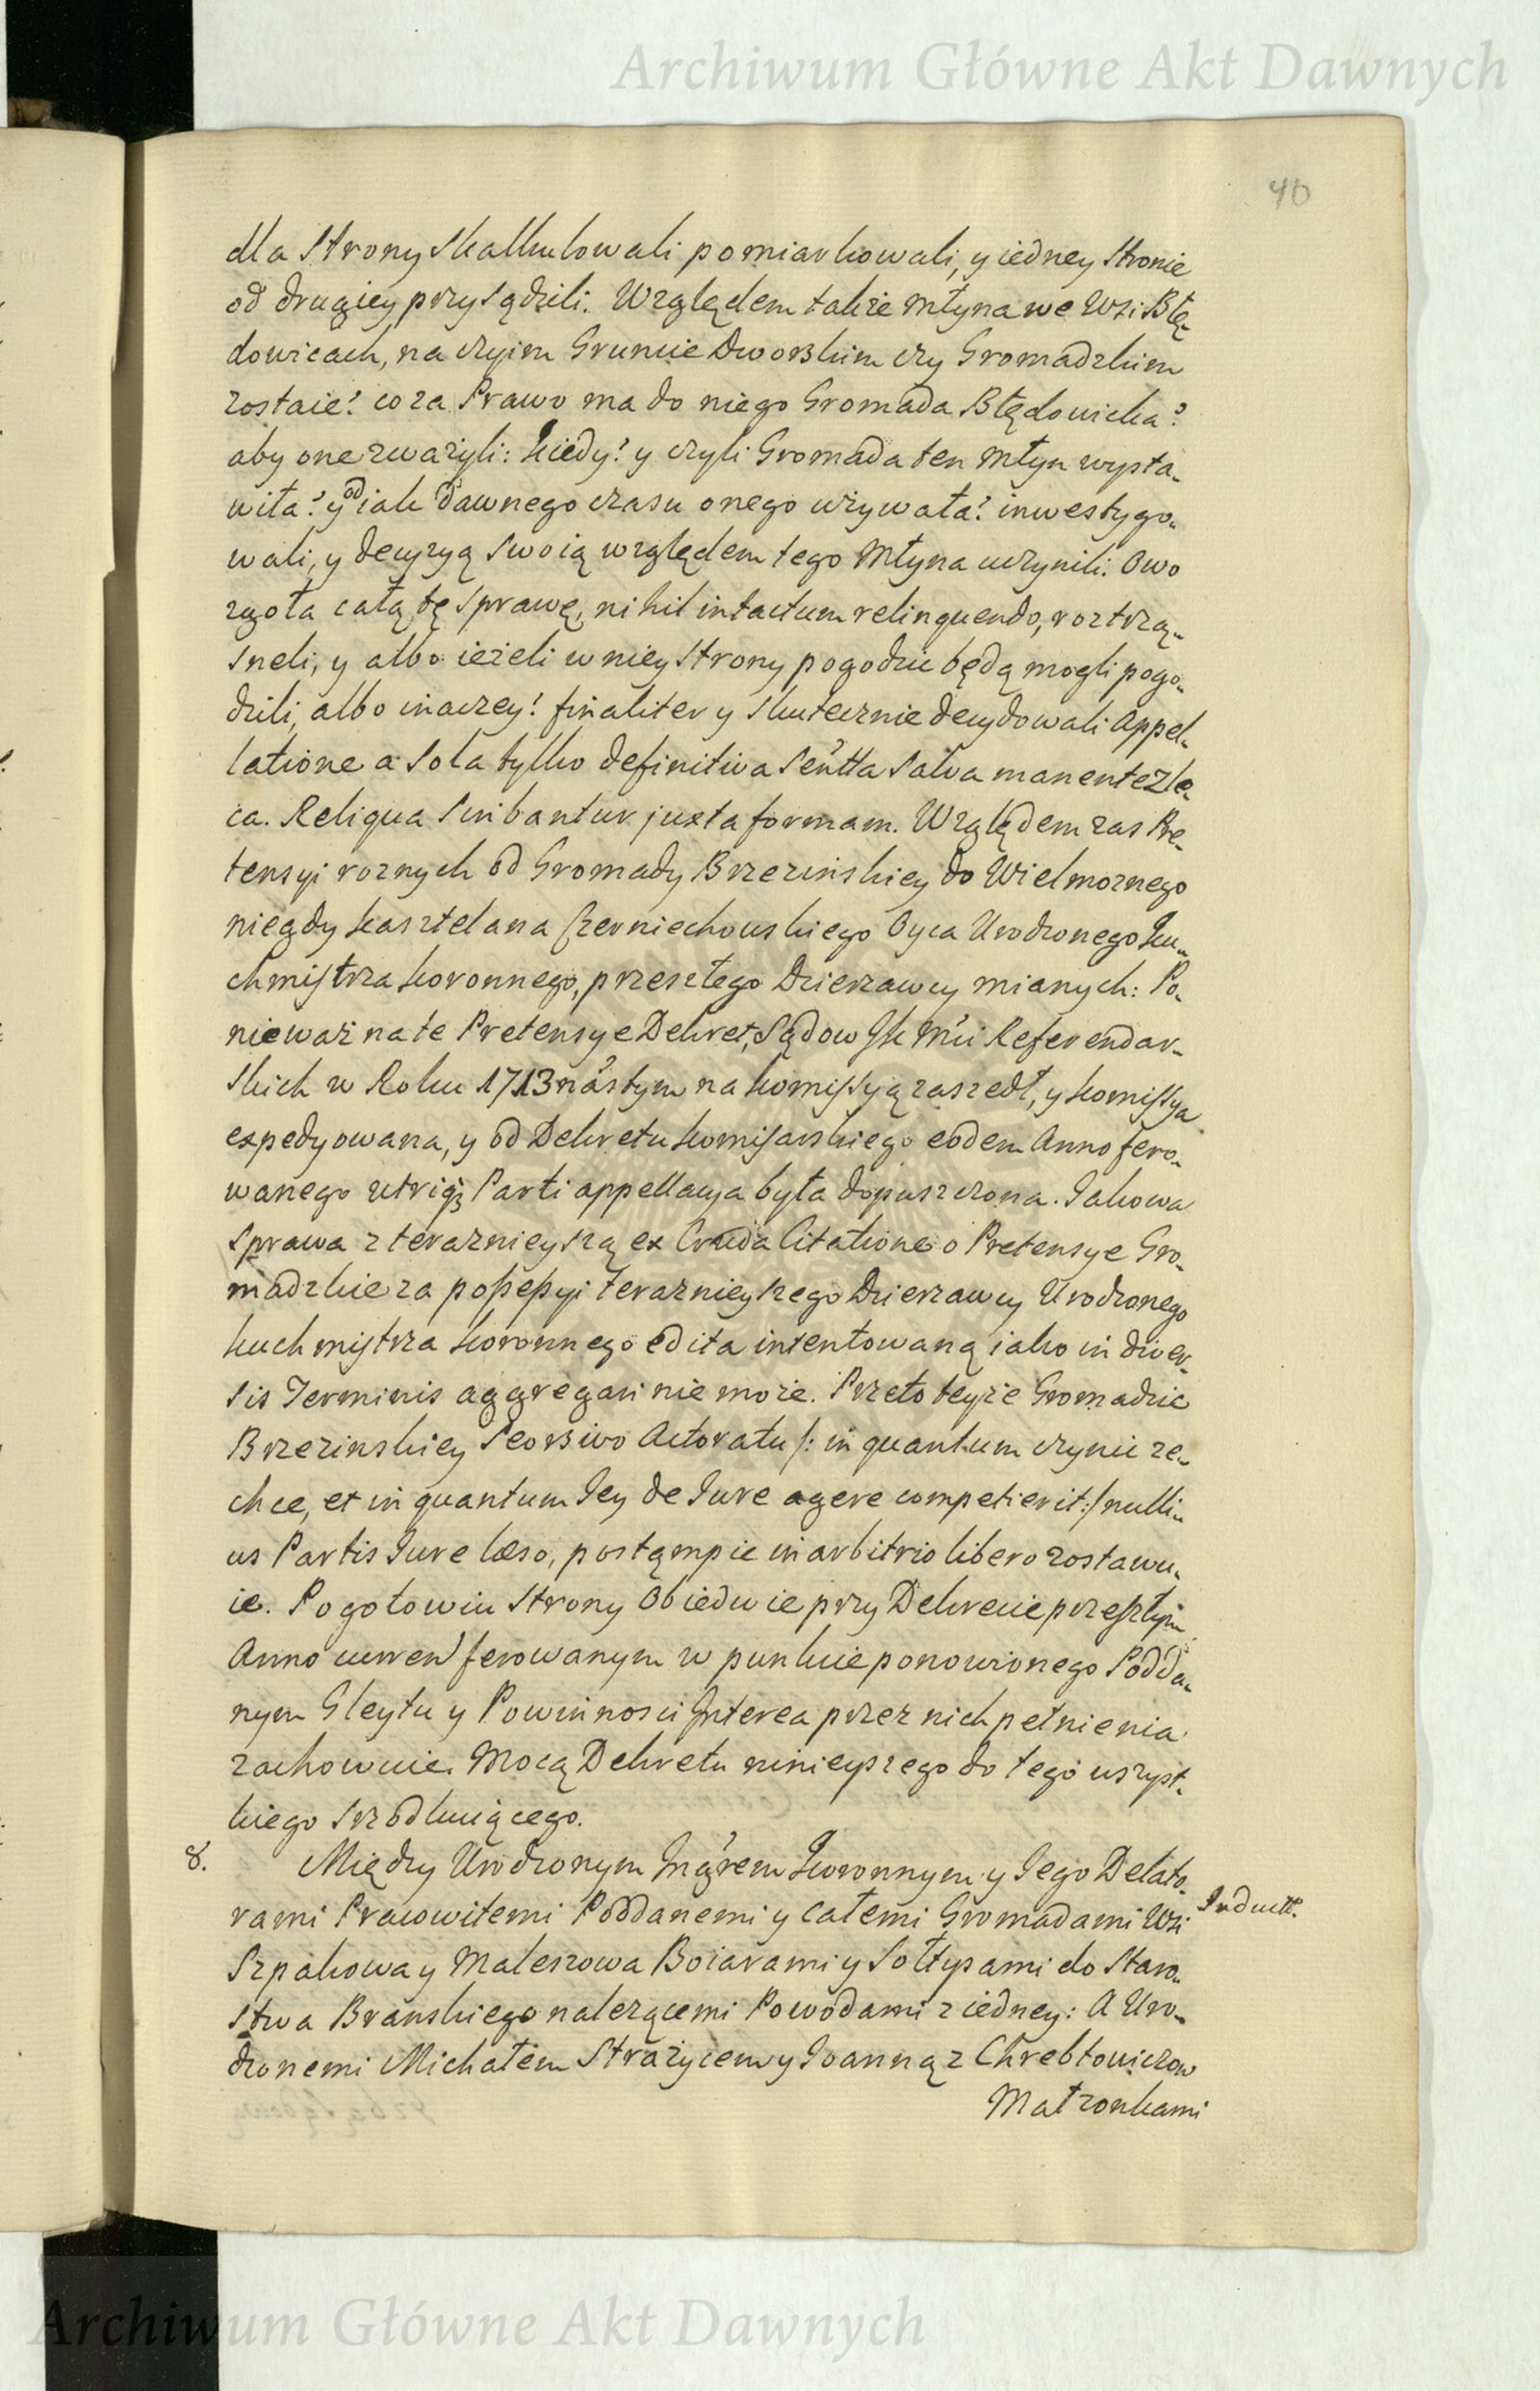 Archiwum Główne Akt Dawnych
40
dla Strony Skalkulowali pomiarkowali, y iedney Stronie
od drugiey przysądzili. Względem także Młyna we Wsi Błę-
dowicach, na czyim Gruncie Dworskim czy Gromadzkim
zostaie? co za Prawo ma do niego Gromada Błędowicka?
aby one zważyli: kiedy? y czyli Gromada ten Młyn wysta-
wiła? y od iak dawnego czasu onego używała? inwestygo-
wali, y decyzyą Swoią względem tego Młyna uczynili. Owo
zgoła całą tę Sprawę, nihil intactum relinquendo, roztrzą-
sneli, y albo ieżeli w niey Strony pogodzic będą mogli pogo-
dzili, albo inaczey! finaliter y Skutecznie decydowali Appel-
latione a Sola tylko definitiva Sentta Salva manente zle-
ca. Reliqua Scribantur juxta formam. Względem zas Pre-
tensyi roznych od Gromady Brzezinskiey do Wielmoznego
niegdy Kasztelana Czerniechowskiego Oyca Urodzonego Ku-
chmistrza Koronnego, przeszłego Dzierzawcy mianych: Po-
nieważ na te Pretensye Dekret, Sądow JK Mci Referendar-
skich w Roku 1713nastym na Kommissyą zaszedł, y Komissya
expedyowana, y od Dekretu Komisarskiego eodem Anno fero-
wanego utriq3 Parti appellacya była dopuszczona. Jakowa
Sprawa z terazniejszą ex Cruda Citatione o Pretensye Gro-
madzkie za possessyi terazniejszego Dzierzawcy Urodzonego
Kuchmistrza Koronnego edita intentowaną iako in diver-
sis Terminis aggregari nie może. Przeto teyże Gromadzie
Brzezinskiey Seorsivo Actoratu /: in quantum czynic ze-
chce, et in quantum Jey de Jure agere competierit :/ nulli-
us Partis Jure læso, postąmpic in arbitrio libero zostawu-
ie. Pogotowiu Strony Obiedwie przy Dekrecie przeszłym
Anno curren ferowanym w punkcie ponowionego Podda-
nym Gleytu y Powinnosci Interea przez nich pełnienia
zachowuie. Mocą Dekretu ninieyszego do tego wszyst-
kiego srzodkuiącego.
8. Między Urodzonym Ingrem Koronnym y Jego Delato-
rami Pracowitemi Poddanemi y całemi Gromadami Wsi
Inductt.
Szpakowa y Maleszowa Boiarami y Sołtysami do Staro-
stwa Branskiego nalezącemi Powodami z iedney: A Uro-
dzonemi Michałem Strażycem y Joanną z Chrebtowiczow
Matzonkami
Archiwum Główne Akt Dawnych